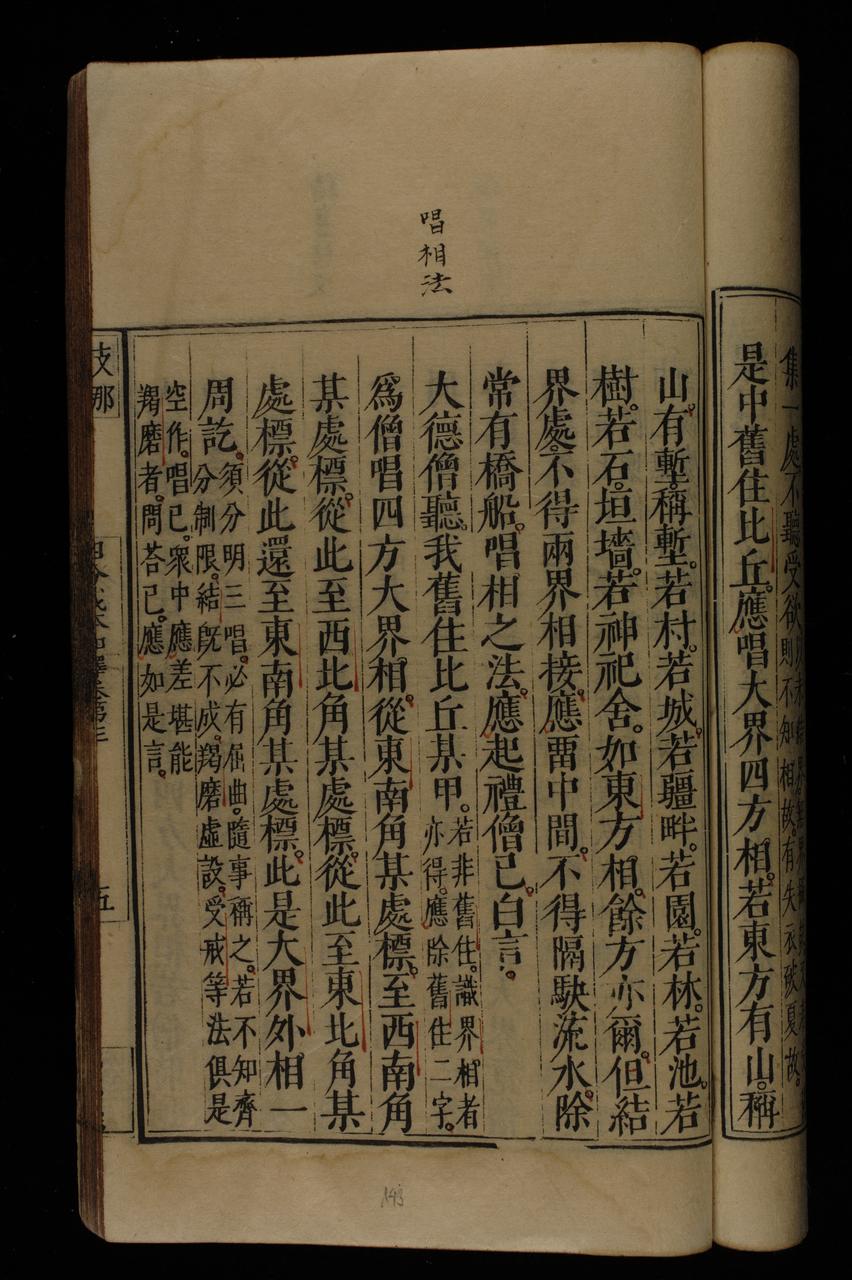 集一處不聽受欲
則不知相故有失衣破夏故
是中舊住比丘應唱大界四方相若東方有山稱
唱相法
山有塹稱塹若村若城若疆畔若園若林若池若
樹若石垣墻若神祀舍如東方相餘方亦爾但結
界處不得兩界相接應畱中間不得隔駃流水除
常有橋船唱相之法應起禮僧已白言
大德僧聽我舊住比丘某甲
若非舊住識界相者
亦得應除舊住二字
爲僧唱四方大界相從東南角某處標至西南角
某處標從此至西北角某處標從此至東北角某
處標從此還至東南角某處標此是大界外相一
周訖
須分明三唱必有屈曲隨事稱之若不知齊
分制限結既不成羯磨虛設受戒等法俱是
空作唱已衆中應差堪能
羯磨者問荅已應如是言
支那
五
143